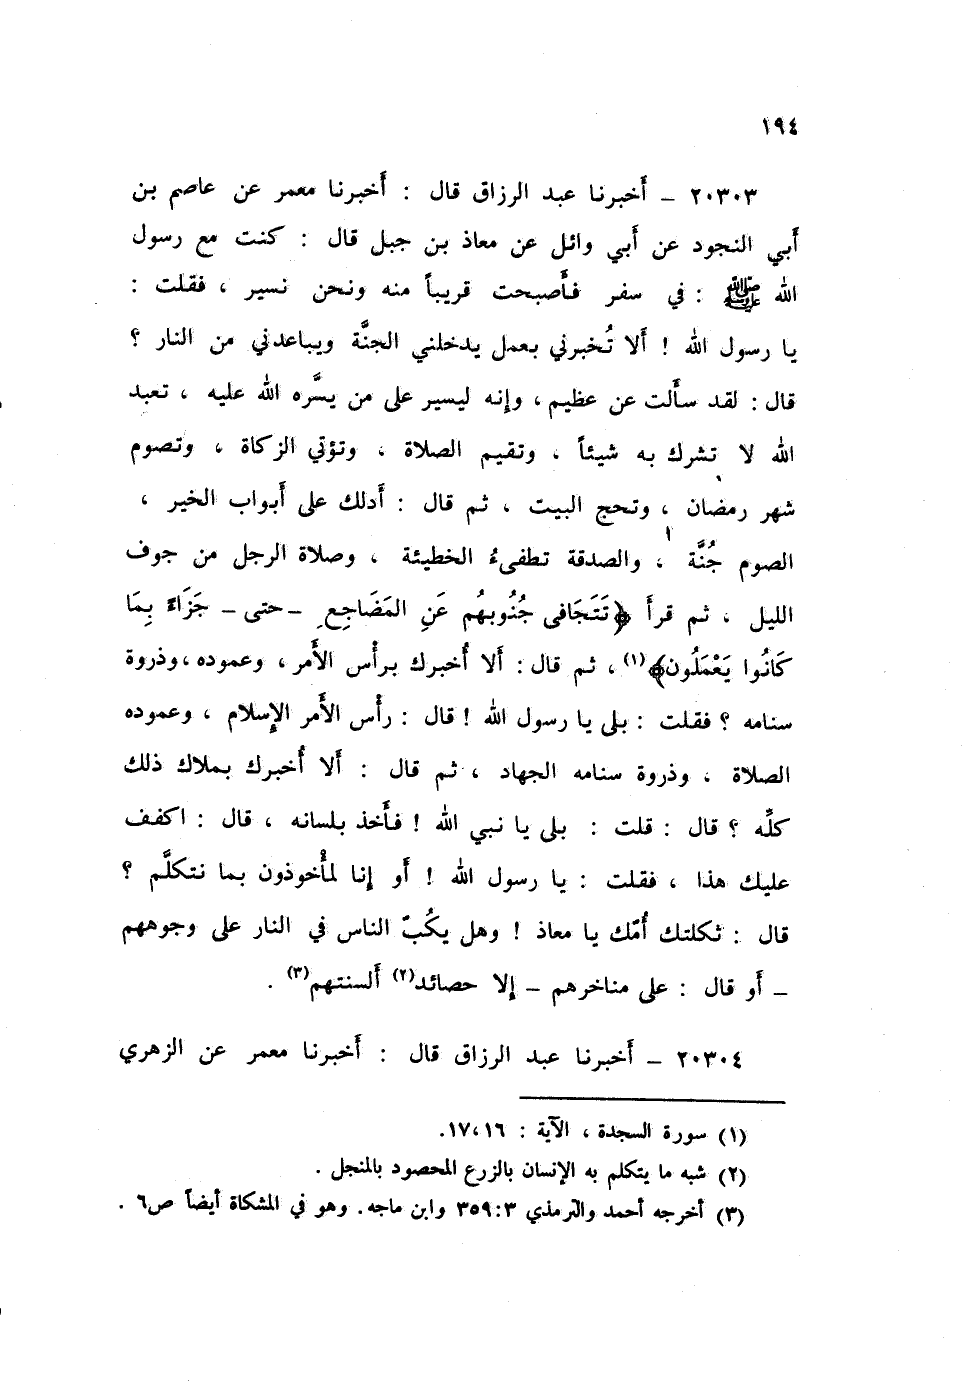 ١٩٤
٢٠٣٠٣ – أَخبرنا عبد الرزاق قال : أَخبرنا معمر عن عاصم بن
أَبي النجود عن أَبي وائل عن معاذ بن جبل قال : كنت مع رسول
الله ﷺ : في سفر فأَصبحت قريباً منه ونحن نسير ، فقلت :
يا رسول الله ! أَلا تُخبرني بعمل يدخلني الجنَّة ويباعدني من النار ؟
قال : لقد سأَلت عن عظيم ، وإنه ليسير على من يسَّره الله عليه ، تعبد
الله لا تشرك به شيئاً ، وتقيم الصلاة ، وتؤتي الزكاة ، وتصوم
شهر رمضان ، وتحج البيت ، ثم قال : أَدلك على أَبواب الخير ،
الصوم جُنَّة ، والصدقة تطفىءُ الخطيئة ، وصلاة الرجل من جوف
الليل ، ثم قرأَ ﴿تَتَجَافى جُنُوبهُم عَنِ المَضَاجِعِ – حتى – جَزَاءً بِمَا
كَانُوا يَعْمَلُون﴾(١) ، ثم قال : أَلا أُخبرك برأْس الأَمر ، وعموده ، وذروة
سنامه ؟ فقلت : بلى يا رسول الله ! قال : رأْس الأَمر الإِسلام ، وعموده
الصلاة ، وذروة سنامه الجهاد ، ثم قال : أَلا أُخبرك بملاك ذلك
كلِّه ؟ قال : قلت : بلى يا نبي الله ! فأَخذ بلسانه ، قال : اكفف
عليك هذا ، فقلت : يا رسول الله ! أَو إنا لمأْخوذون بما نتكلَّم ؟
قال : ثكلتك أُمّك يا معاذ ! وهل يكُبّ الناس في النار على وجوههم
– أَو قال : على مناخرهم – إلا حصائد(٢) أَلسنتهم(٣) .
٢٠٣٠٤ – أَخبرنا عبد الرزاق قال : أَخبرنا معمر عن الزهري
(١) سورة السجدة ، الآية : ١٦ ،١٧.
(٢) شبه ما يتكلم به الإنسان بالزرع المحصود بالمنجل .
(٣) أخرجه أحمد والترمذي ٣ :٣٥٩ وابن ماجه. وهو في المشكاة أيضاً ص٦ .